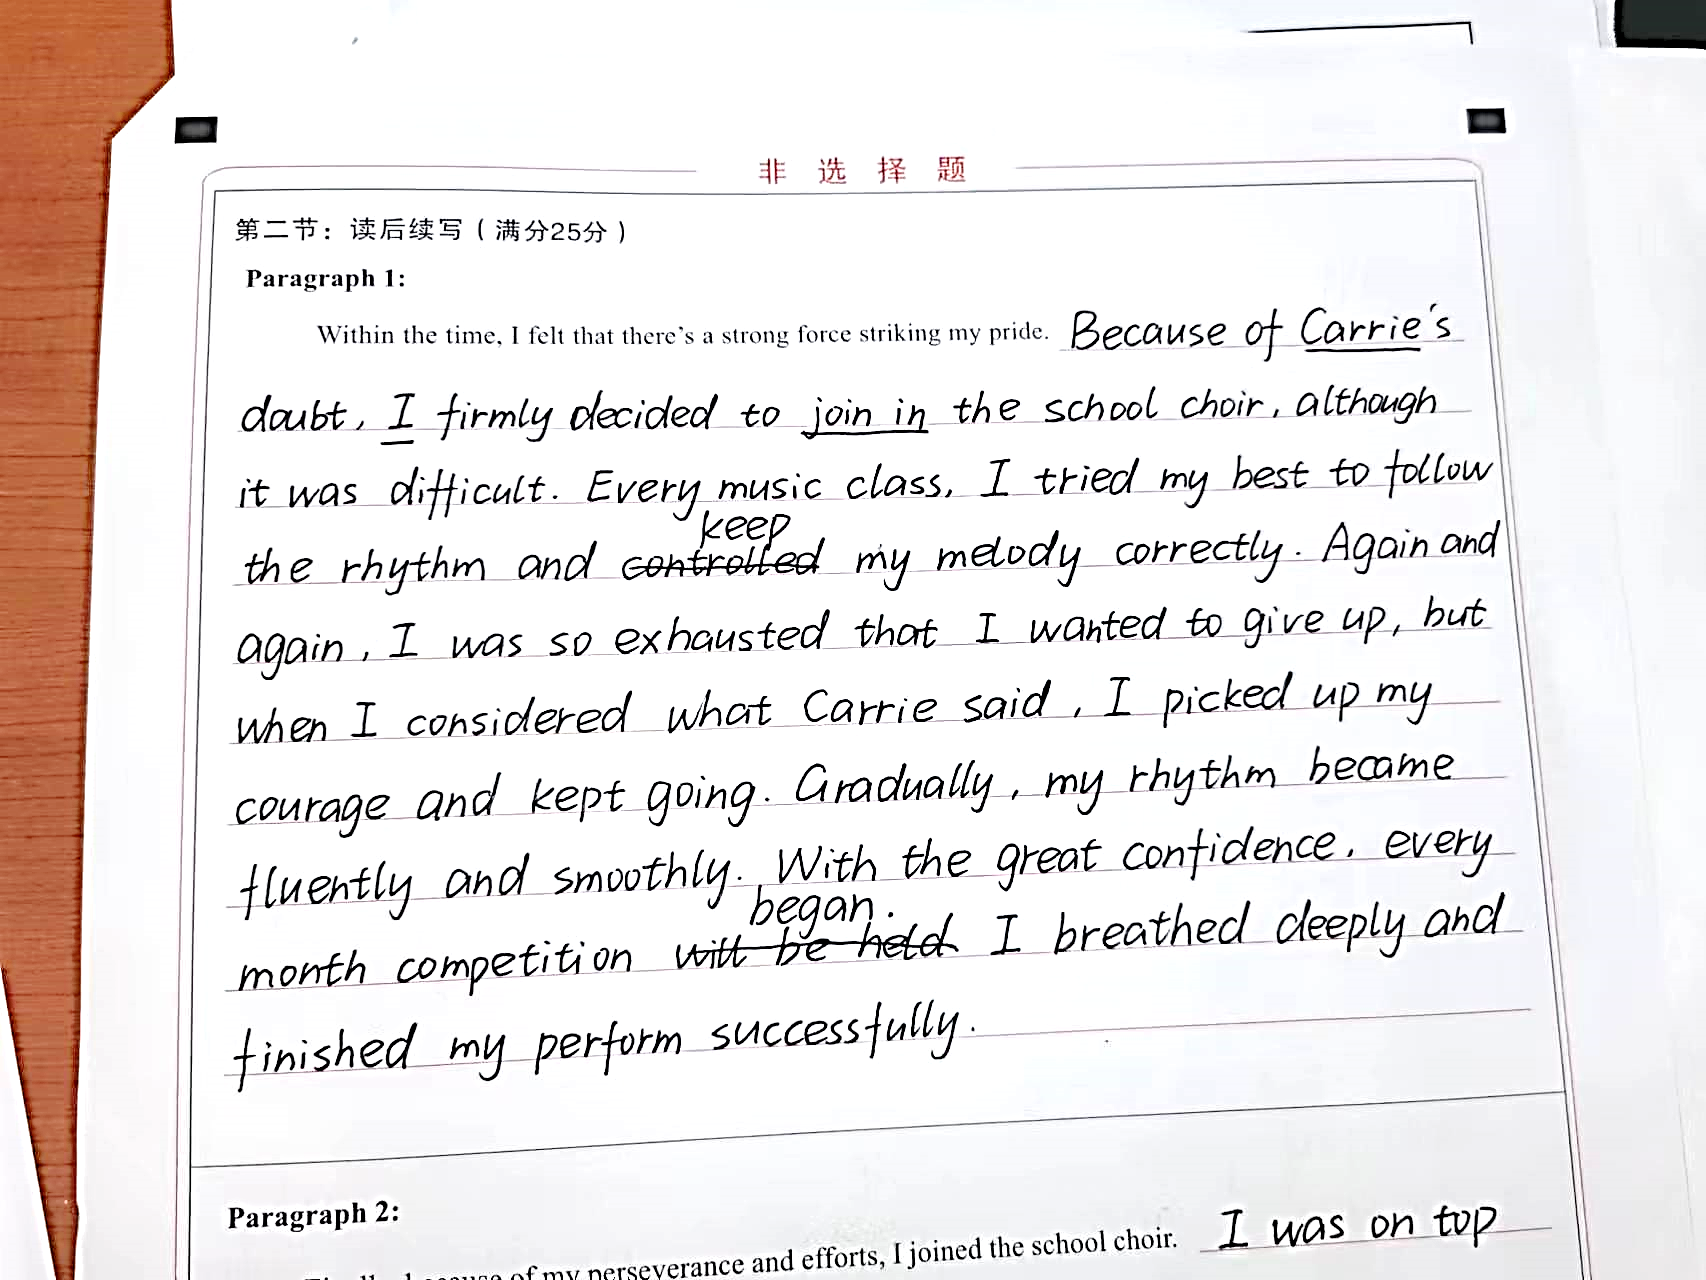 非选择题
第二节：读后续写（满分25分）
Paragraph 1:
Within the time, I felt that there's a strong force striking my pride. Because of Carrie's
doubt, I firmly decided to join in the school choir, although
it was difficult. Every music class, I tried my best to follow
keep
the rhythm and controlled my melody correctly. Again and
again, I was so exhausted that I wanted to give up, but
when I considered what Carrie said, I picked up my
courage and kept going. Gradually, my rhythm became
fluently and smoothly. With the great confidence, every
began.
month competition will be held I breathed deeply and
finished my perform successfully.
Paragraph 2:
because of my perseverance and efforts, I joined the school choir. I was on top